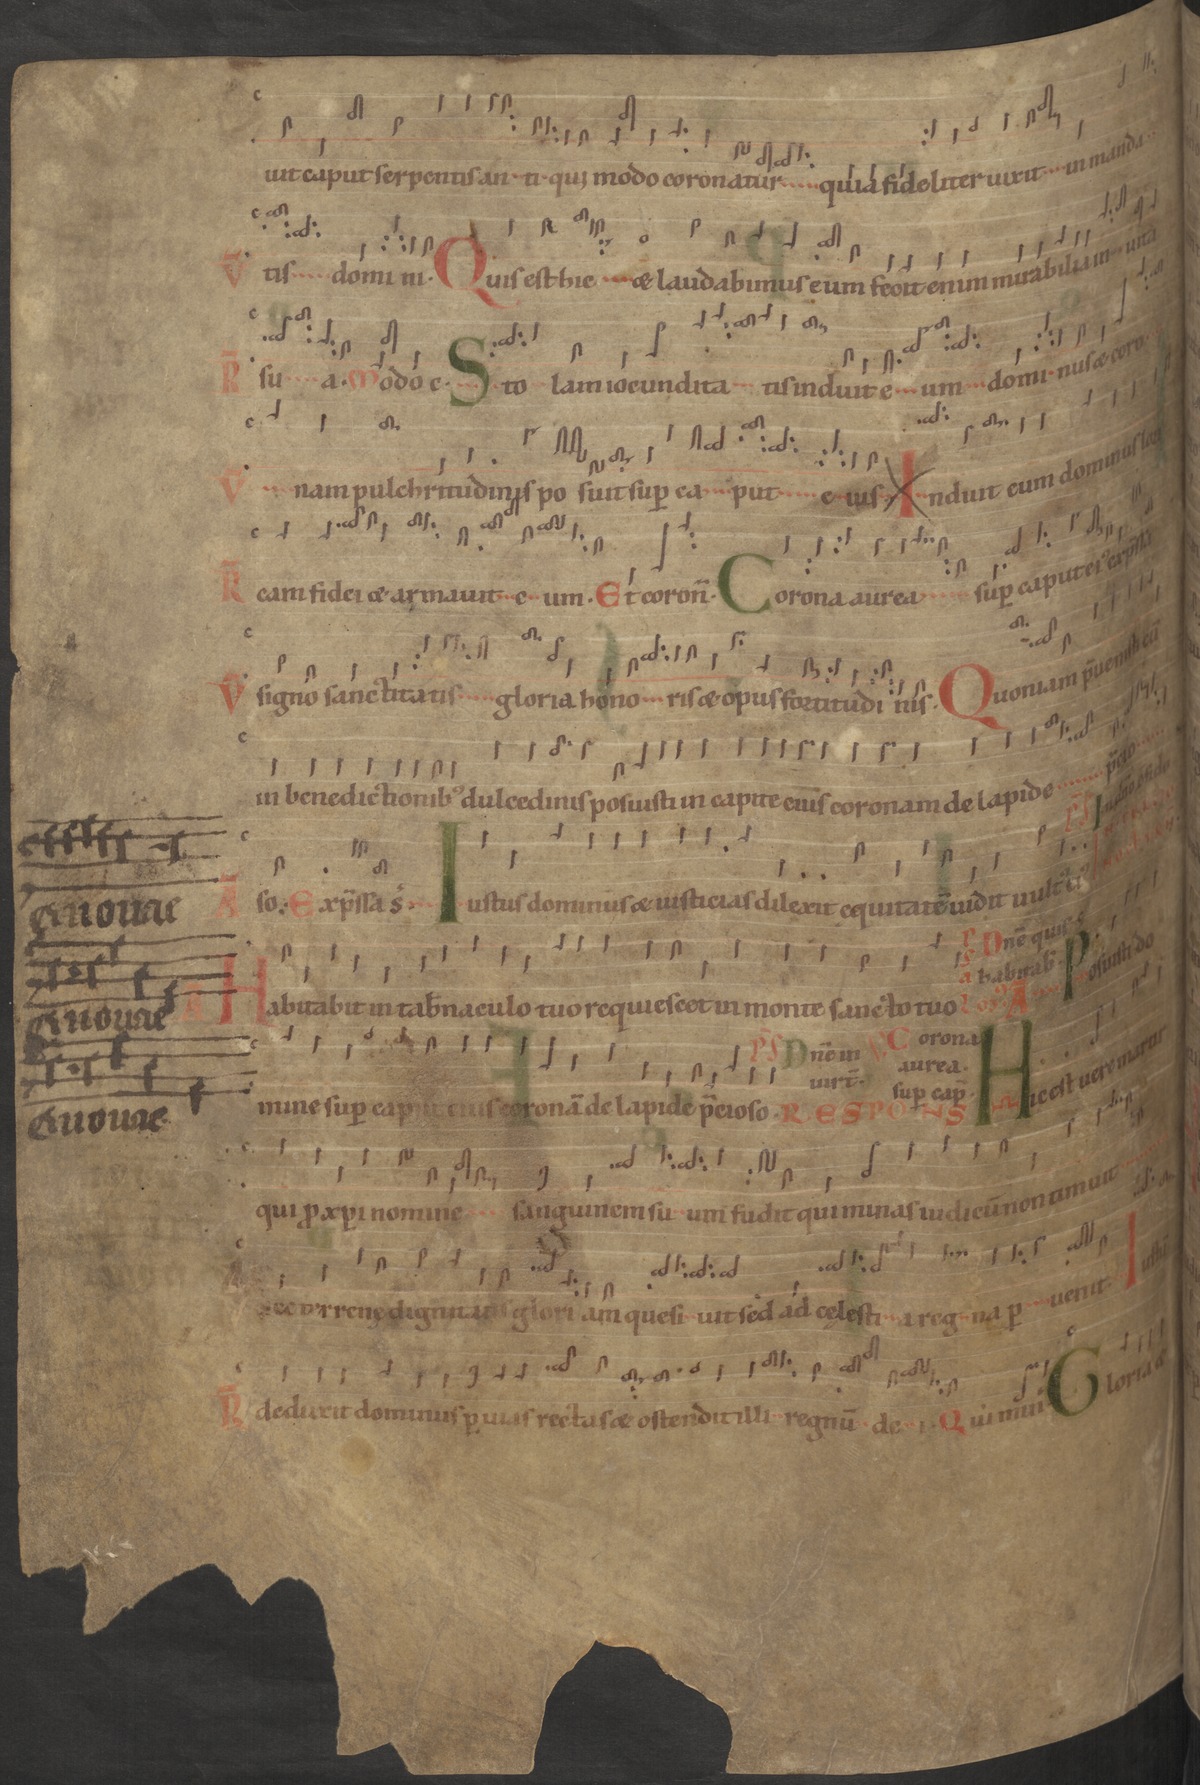 uit caput serpentis an ti qui modo coronatur quia fideliter uixit in manda
V tis domi ni. Quis est hic & laudabimus eum fecit enim mirabilia in uita
R su a. Modo c. Sto lam iocundita tis induit e um domi nus & coro
V nam pulchritudinis po suit sup ca put e ius. Induit eum dominus lori
R cam fidei & armauit e um. Et coron̄. Corona aurea sup caput ei᾽ exp̄ssa
V signo sanctitatis gloria hono ris & opus fortitudi nis. Quoniam p̄uenisti eū
in benedictionib᾽ dulcedinis posuisti in capite eius coronam de lapide p̄cio
A so. Exp̄ssa s. Iustus dominus & iusticias dilexit equitatē uidit uult᾽ ei᾽
Euouae
Habitabit in tab̄naculo tuo requiescet in monte sancto tuo
Dn̄e quis habitab̄. A Posuisti do
Euouae
mine sup caput eius coronā de lapide p̄cioso. RESPONS
Ps Dn̄e in uirt̄. V Corona aurea sup cap̄
Hic est uere martir
Euouae
qui p xp̄i nomine sanguinem su um fudit qui minas iudicū non timuit
nec terrene dignitatis glori am quesi uit sed ad celesti a reg na p uenit. Iustū
R deduxit dominus p uias rectas & ostendit illi regnū de i. Qui mi Gloria &